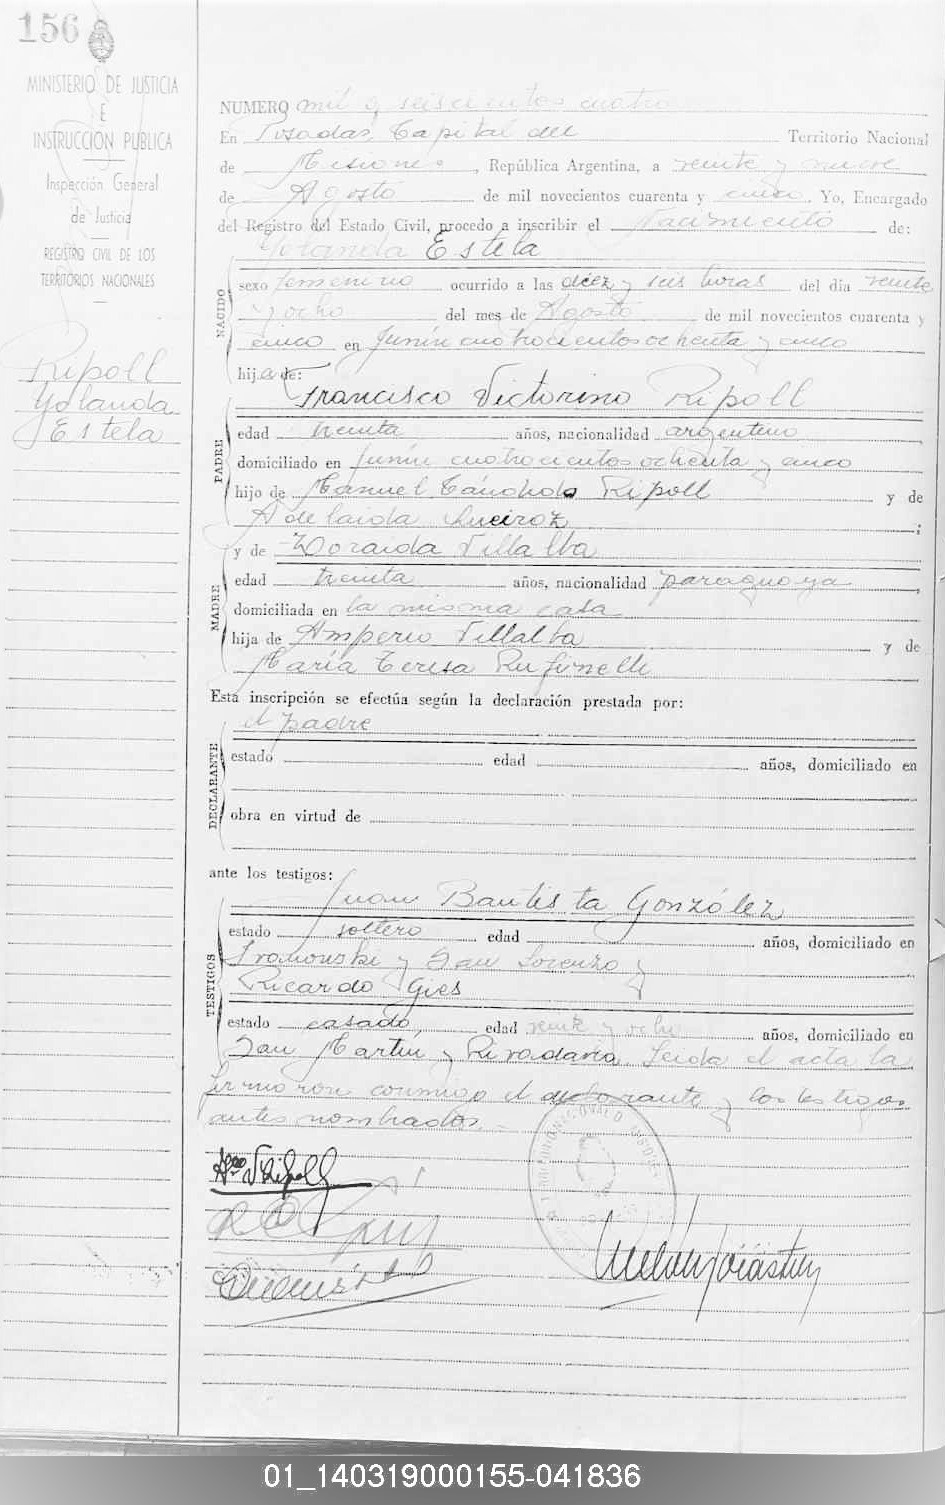 156
MINISTERIO DE JUSTICIA
E
INSTRUCCIÓN PUBLICA
Inspección General
de Justicia
REGISTRO CIVIL DE LOS
TERRITORIOS NACIONALES
Ripoll
Yolanda
Estela
NUMERO mil seiscientos cuatro
En Posadas, Capital del Territorio Nacional
de Misiones, República Argentina, a veinte y nueve
de Agosto de mil novecientos cuarenta y cinco. Yo, Encargado
del Registro del Estado Civil, procedo a inscribir el Nacimiento de:
Yolanda Estela
NACIDO
sexo femenino ocurrido a las diez y seis horas del día veinte
y ocho del mes de Agosto de mil novecientos cuarenta y
cinco en Junín cuatrocientos ochenta y cinco
hija de:
Francisco Victorino Ripoll
PADRE
edad treinta años, nacionalidad argentino
domiciliado en Junín cuatrocientos ochenta y cinco
hijo de Manuel Ripoll y de
Adelaida ;
y de Zoraida Villalba
MADRE
edad treinta años, nacionalidad paraguaya
domiciliada en la misma casa
hija de Amperio Villalba y de
María Teresa Rufinelli
Esta inscripción se efectúa según la declaración prestada por:
el padre
DECLARANTE
estado edad años, domiciliado en
obra en virtud de
ante los testigos:
Juan Bautista González
TESTIGOS
estado soltero edad años, domiciliado en
y San Lorenzo y
Ricardo Gies
estado casado, edad veinte y ocho años, domiciliado en
San Martín y Rivadavia. Leida el acta la
firmaron conmigo el declarante y los testigos
antes nombrados.
01_140319000155-041836